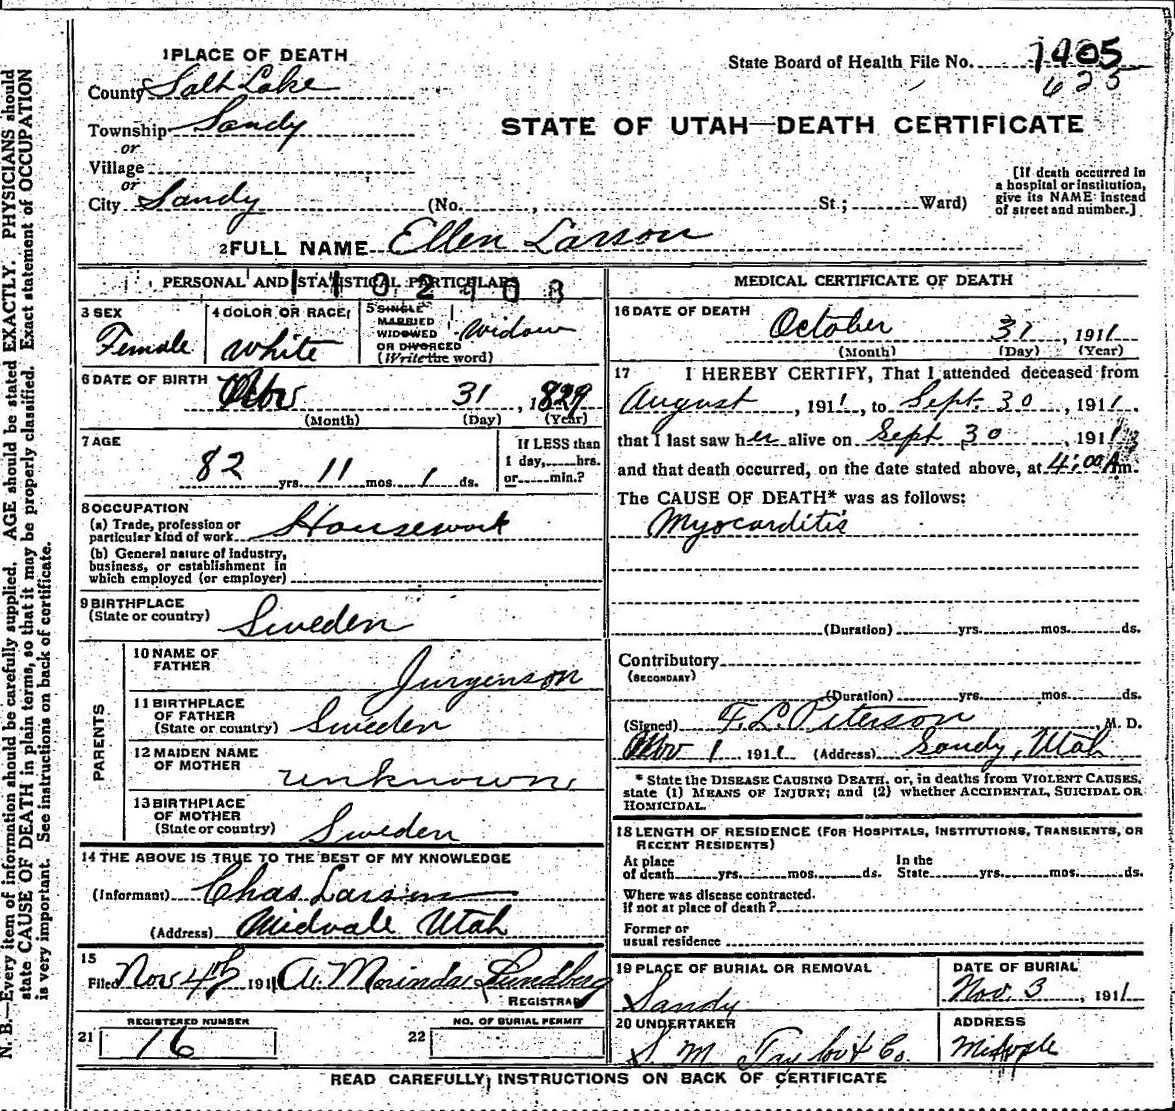 1 PLACE OF DEATH
State Board of Health File No. 1405
625
County Salt Lake
Township Sandy
or
Village
or
City Sandy (No. , St.; Ward)
STATE OF UTAH—DEATH CERTIFICATE
[If death occurred in
a hospital or institution,
give its NAME instead
of street and number.]
2 FULL NAME Ellen Larson
PERSONAL AND STATISTICAL PARTICULARS
3 SEX
Female
4 COLOR OR RACE
White
5 SINGLE
MARRIED
WIDOWED
OR DIVORCED
(Write the word)
Widow
6 DATE OF BIRTH
31, 1829
(Month) (Day) (Year)
7 AGE
82 yrs. 11 mos. 1 ds.
If LESS than
1 day, hrs.
or min.?
8 OCCUPATION
(a) Trade, profession or
particular kind of work Housework
(b) General nature of industry,
business, or establishment in
which employed (or employer)
9 BIRTHPLACE
(State or country) Sweden
PARENTS
10 NAME OF
FATHER Jurgenson
11 BIRTHPLACE
OF FATHER
(State or country) Sweden
12 MAIDEN NAME
OF MOTHER unknown
13 BIRTHPLACE
OF MOTHER
(State or country) Sweden
14 THE ABOVE IS TRUE TO THE BEST OF MY KNOWLEDGE
(Informant) Chas Larson
(Address) Midvale Utah
15
Filed Nov 4th 1911 Lundberg
REGISTRAR
21 REGISTERED NUMBER
16
22 NO. OF BURIAL PERMIT
MEDICAL CERTIFICATE OF DEATH
16 DATE OF DEATH
October 31, 1911
(Month) (Day) (Year)
17 I HEREBY CERTIFY, That I attended deceased from
August, 1911, to Sept. 30, 1911.
that I last saw her alive on Sept 30, 1911
and that death occurred, on the date stated above, at 4:00 A m.
The CAUSE OF DEATH* was as follows:
Myocarditis
(Duration) yrs. mos. ds.
Contributory
(SECONDARY)
(Duration) yrs. mos. ds.
(Signed) F. L. Peterson, M. D.
Nov 1, 1911 (Address) Sandy, Utah
* State the DISEASE CAUSING DEATH, or, in deaths from VIOLENT CAUSES,
state (1) MEANS OF INJURY; and (2) whether ACCIDENTAL, SUICIDAL OR
HOMICIDAL.
18 LENGTH OF RESIDENCE (FOR HOSPITALS, INSTITUTIONS, TRANSIENTS, OR
RECENT RESIDENTS)
At place
of death yrs. mos. ds.
In the
State yrs. mos. ds.
Where was disease contracted.
if not at place of death?
Former or
usual residence
19 PLACE OF BURIAL OR REMOVAL
Sandy
DATE OF BURIAL
Nov. 3, 1911
20 UNDERTAKER
S M Taylor & Co.
ADDRESS
READ CAREFULLY INSTRUCTIONS ON BACK OF CERTIFICATE
N. B.—Every item of information should be carefully supplied. AGE should be stated EXACTLY. PHYSICIANS should
state CAUSE OF DEATH in plain terms, so that it may be properly classified. Exact statement of OCCUPATION
is very important. See instructions on back of certificate.